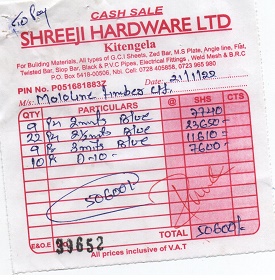 To Pay
CASH SALE
SHREEJI HARDWARE LTD
Kitengela
For Building Materials, All types of G.C.I Sheets, Zed Bar, M.S Plate, Angle line, Flat,
Twisted Bar, Stop Bar, Black & P.V.C Pipes, Electrical Fittings, Weld Mesh & B.R.C
P.O. Box 5418-00506, Nbi. Cell: 0728 405858, 0723 965 980
PIN No. P051681883Z Date: 21/1/22
M/s: Mololine Timber
QTY PARTICULARS @ SHS CTS
9 Pc 2mts Blue 7740
22 Pc 2½mts Blue 23650-
9 Pc 3mts Blue 11610-
10 D-10 7600-
50600/-
TOTAL 50600/-
E&O.E 39652
All prices inclusive of V.A.T